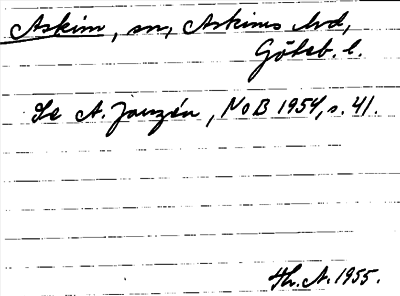 Askim, sn, Askims hd,
Göteb. l.
Se A. Janzén, NoB 1954, s. 41.
Th. A. 1955.